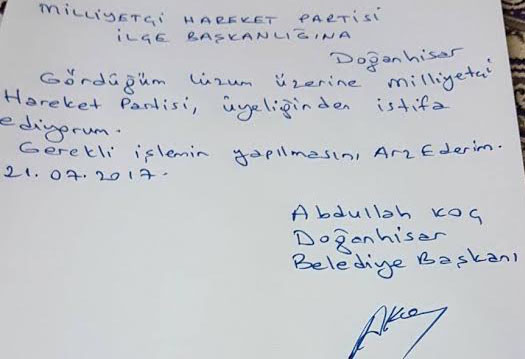 MİLLİYETÇİ HAREKET PARTİSİ
İLÇE BAŞKANLIĞINA
Doğanhisar
Gördüğüm lüzum üzerine milliyetçi
Hareket Partisi, üyeliğinden istifa
ediyorum.
Gerekli işlemin yapılmasını Arz Ederim.
21.07.2017.
Abdullah KOÇ
Doğanhisar
Belediye Başkanı